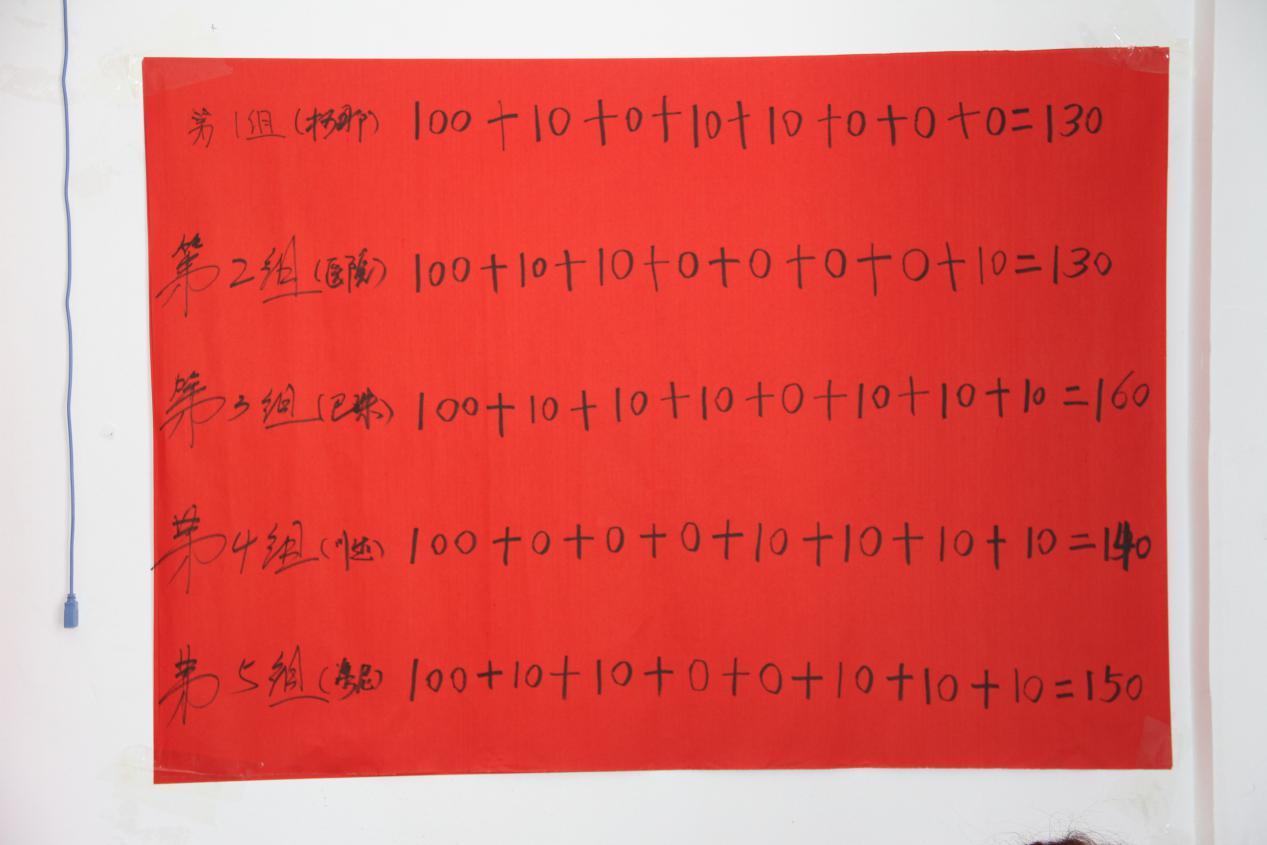 第1组(杨那) 100+10+0+10+10+0+0+0=130
第2组(医院) 100+10+10+0+0+0+0+10=130
第3组(巴珠) 100+10+10+10+0+10+10+10=160
第4组(川达) 100+0+0+0+10+10+10+10=140
第5组() 100+10+10+0+0+10+10+10=150